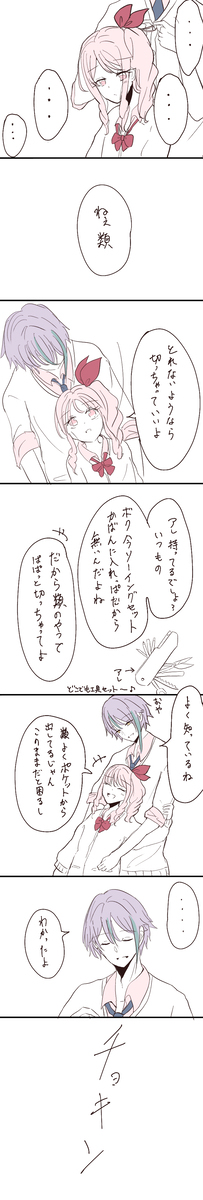 ・・・
・・・
・・・
ねえ
類
とれないようなら
切っちゃっていいよ
アレ持ってるでしょ?
いつもの
ボク今ソーイングセット
かばんに入れっぱだから
無いんだよね
だから類のやつで
ぱぱっと切っちゃってよ
アレ→
どこでも工具セット〜♪
よく知っているね
おや
類よくポケットから
出してるじゃん
このままだと困るし
・・・・
わかったよ
チョキン